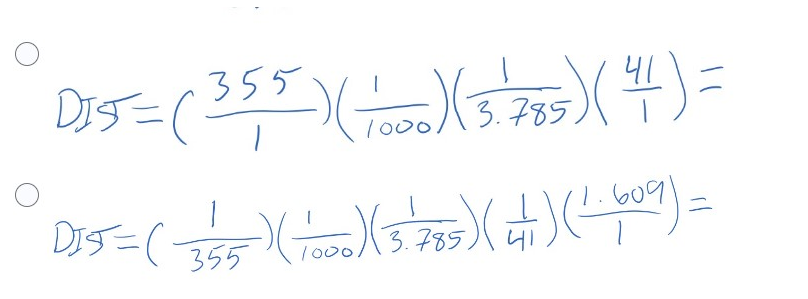 DIST = (355/1)(1/1000)(1/3.785)(41/1) =
DIST = (1/355)(1/1000)(1/3.785)(1/41)(1.609/1) =